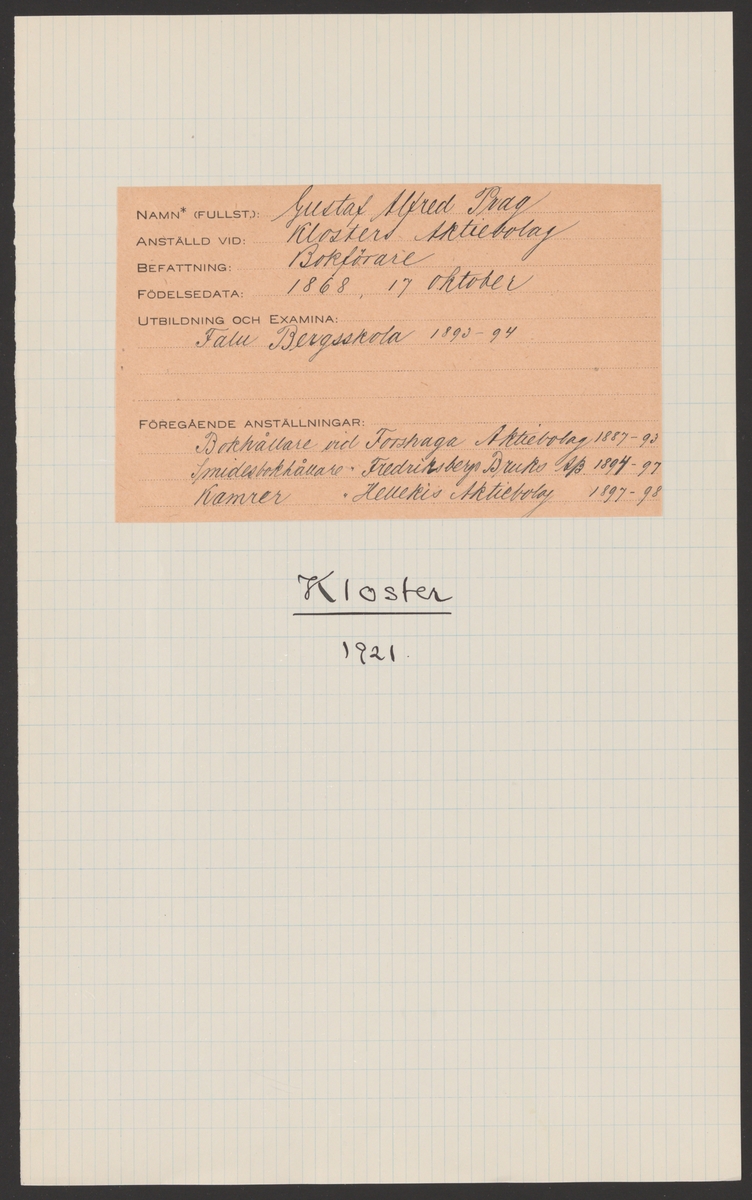 NAMN* (FULLST.): Gustaf Alfred Prag
ANSTÄLLD VID: Klosters Aktiebolag
BEFATTNING: Bokförare
FÖDELSEDATA: 1868, 17 Oktober
UTBILDNING OCH EXAMINA:
Falu Bergsskola 1893-94
FÖREGÅENDE ANSTÄLLNINGAR:
Bokhållare vid Forshaga Aktiebolag 1887-93
Smidesbokhållare " Fredriksbergs Bruks AB. 1894-97
Kamrer " Hellekis Aktiebolag 1897-98
Kloster
1921.